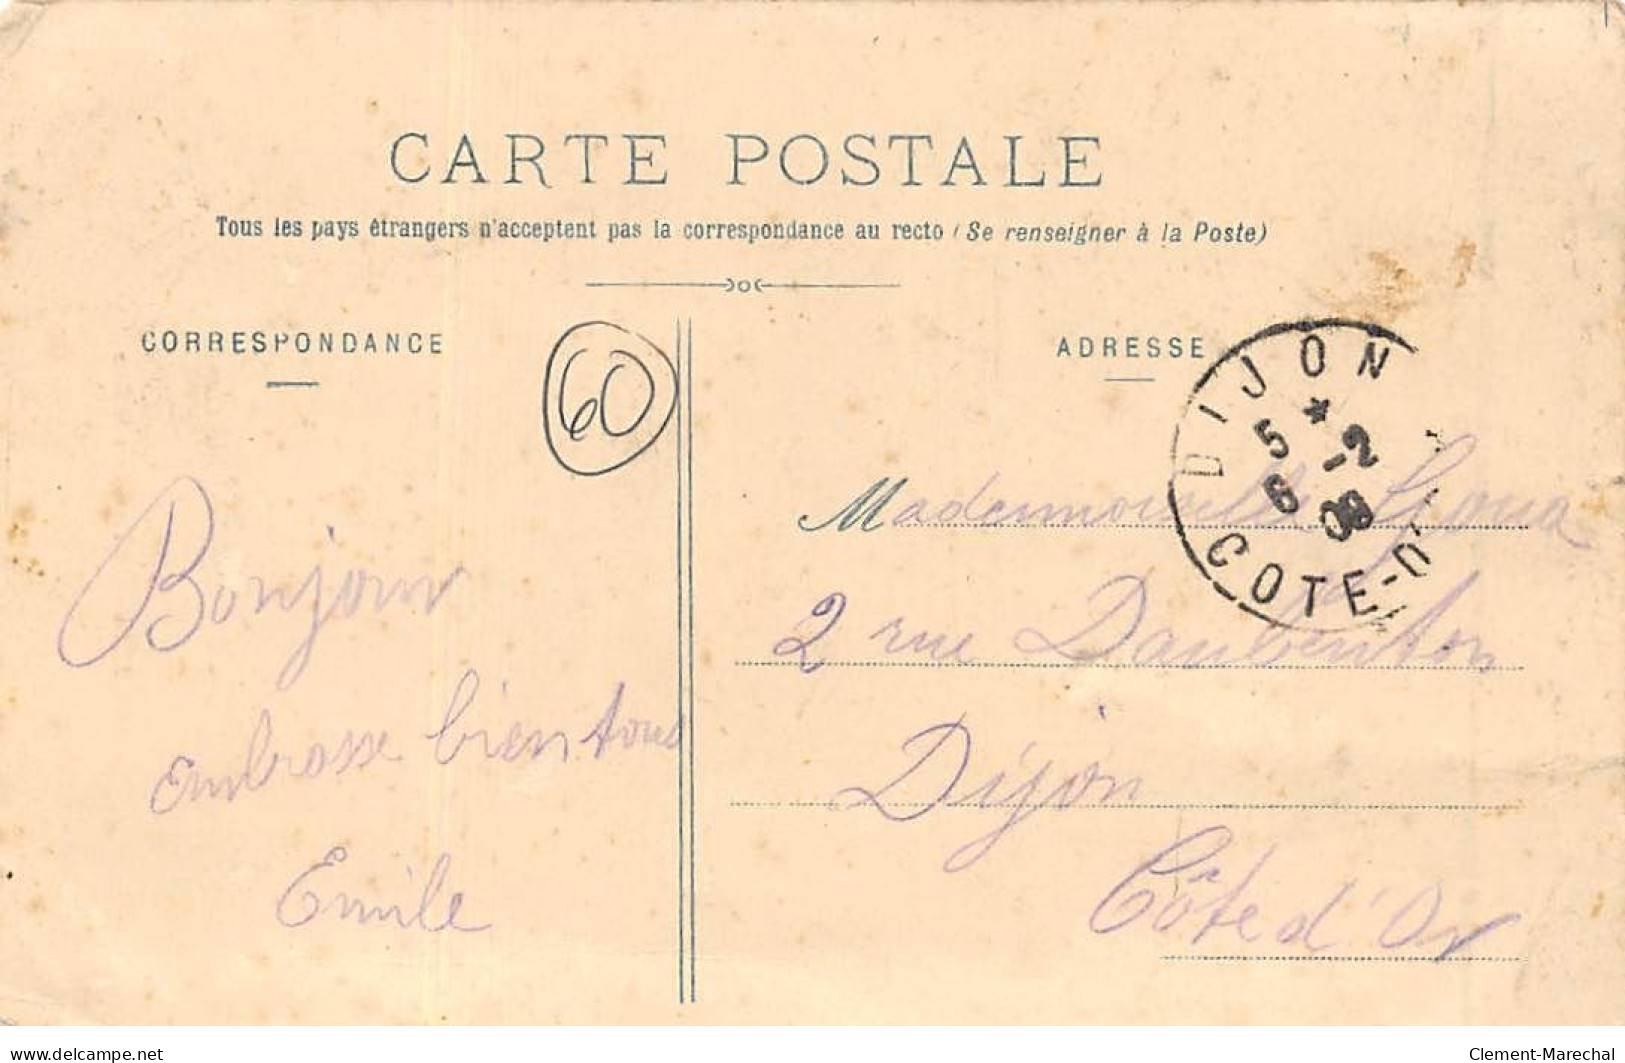 CARTE POSTALE
Tous les pays étrangers n'acceptent pas la correspondance au recto (Se renseigner à la Poste)
CORRESPONDANCE
60
Bonjour
embrasse bien tous
Emile
ADRESSE
DIJON
5 * -2
6 09
COTE-D'
Mademoiselle
2 rue Daubenton
Dijon
Côte d'Or
www.delcampe.net
Clement-Marechal